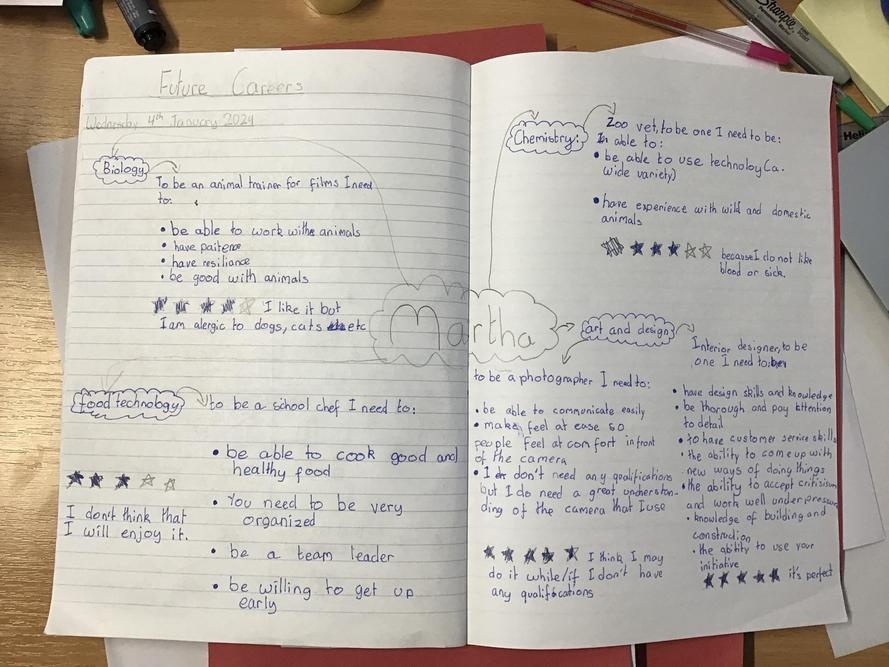 Future Careers
Wednesday 4th January 2024
Biology
To be an animal trainer for films I need
to:
• be able to work with animals
• have paitence
• have resiliance
• be good with animals
I like it but
I am alergic to dogs, cats etc
Food technology
to be a school chef I need to:
• be able to cook good and
healthy food
• You need to be very
organized
• be a team leader
• be willing to get up
early
I don't think that
I will enjoy it.
Martha
Chemistry:
Zoo vet, to be one I need to be:
able to:
• be able to use technoloy (a
wide variety)
• have experience with wild and domestic
animals
because I do not like
blood or sick.
art and design
to be a photographer I need to:
• be able to communicate easily
• make feel at ease so
people feel at comfort in front
of the camera
• I don't need any qualifications
but I do need a great understan-
ding of the camera that I use
I think I may
do it while/if I don't have
any qualifications
Interior designer, to be
one I need to:
• have design skills and knowledge
• be thorough and pay attention
to detail
• to have customer service skills
• the ability to come up with
new ways of doing things
• the ability to accept critisism
and work well under pressure
• knowledge of building and
construction
• the ability to use your
initiative
it's perfect
Sharpie